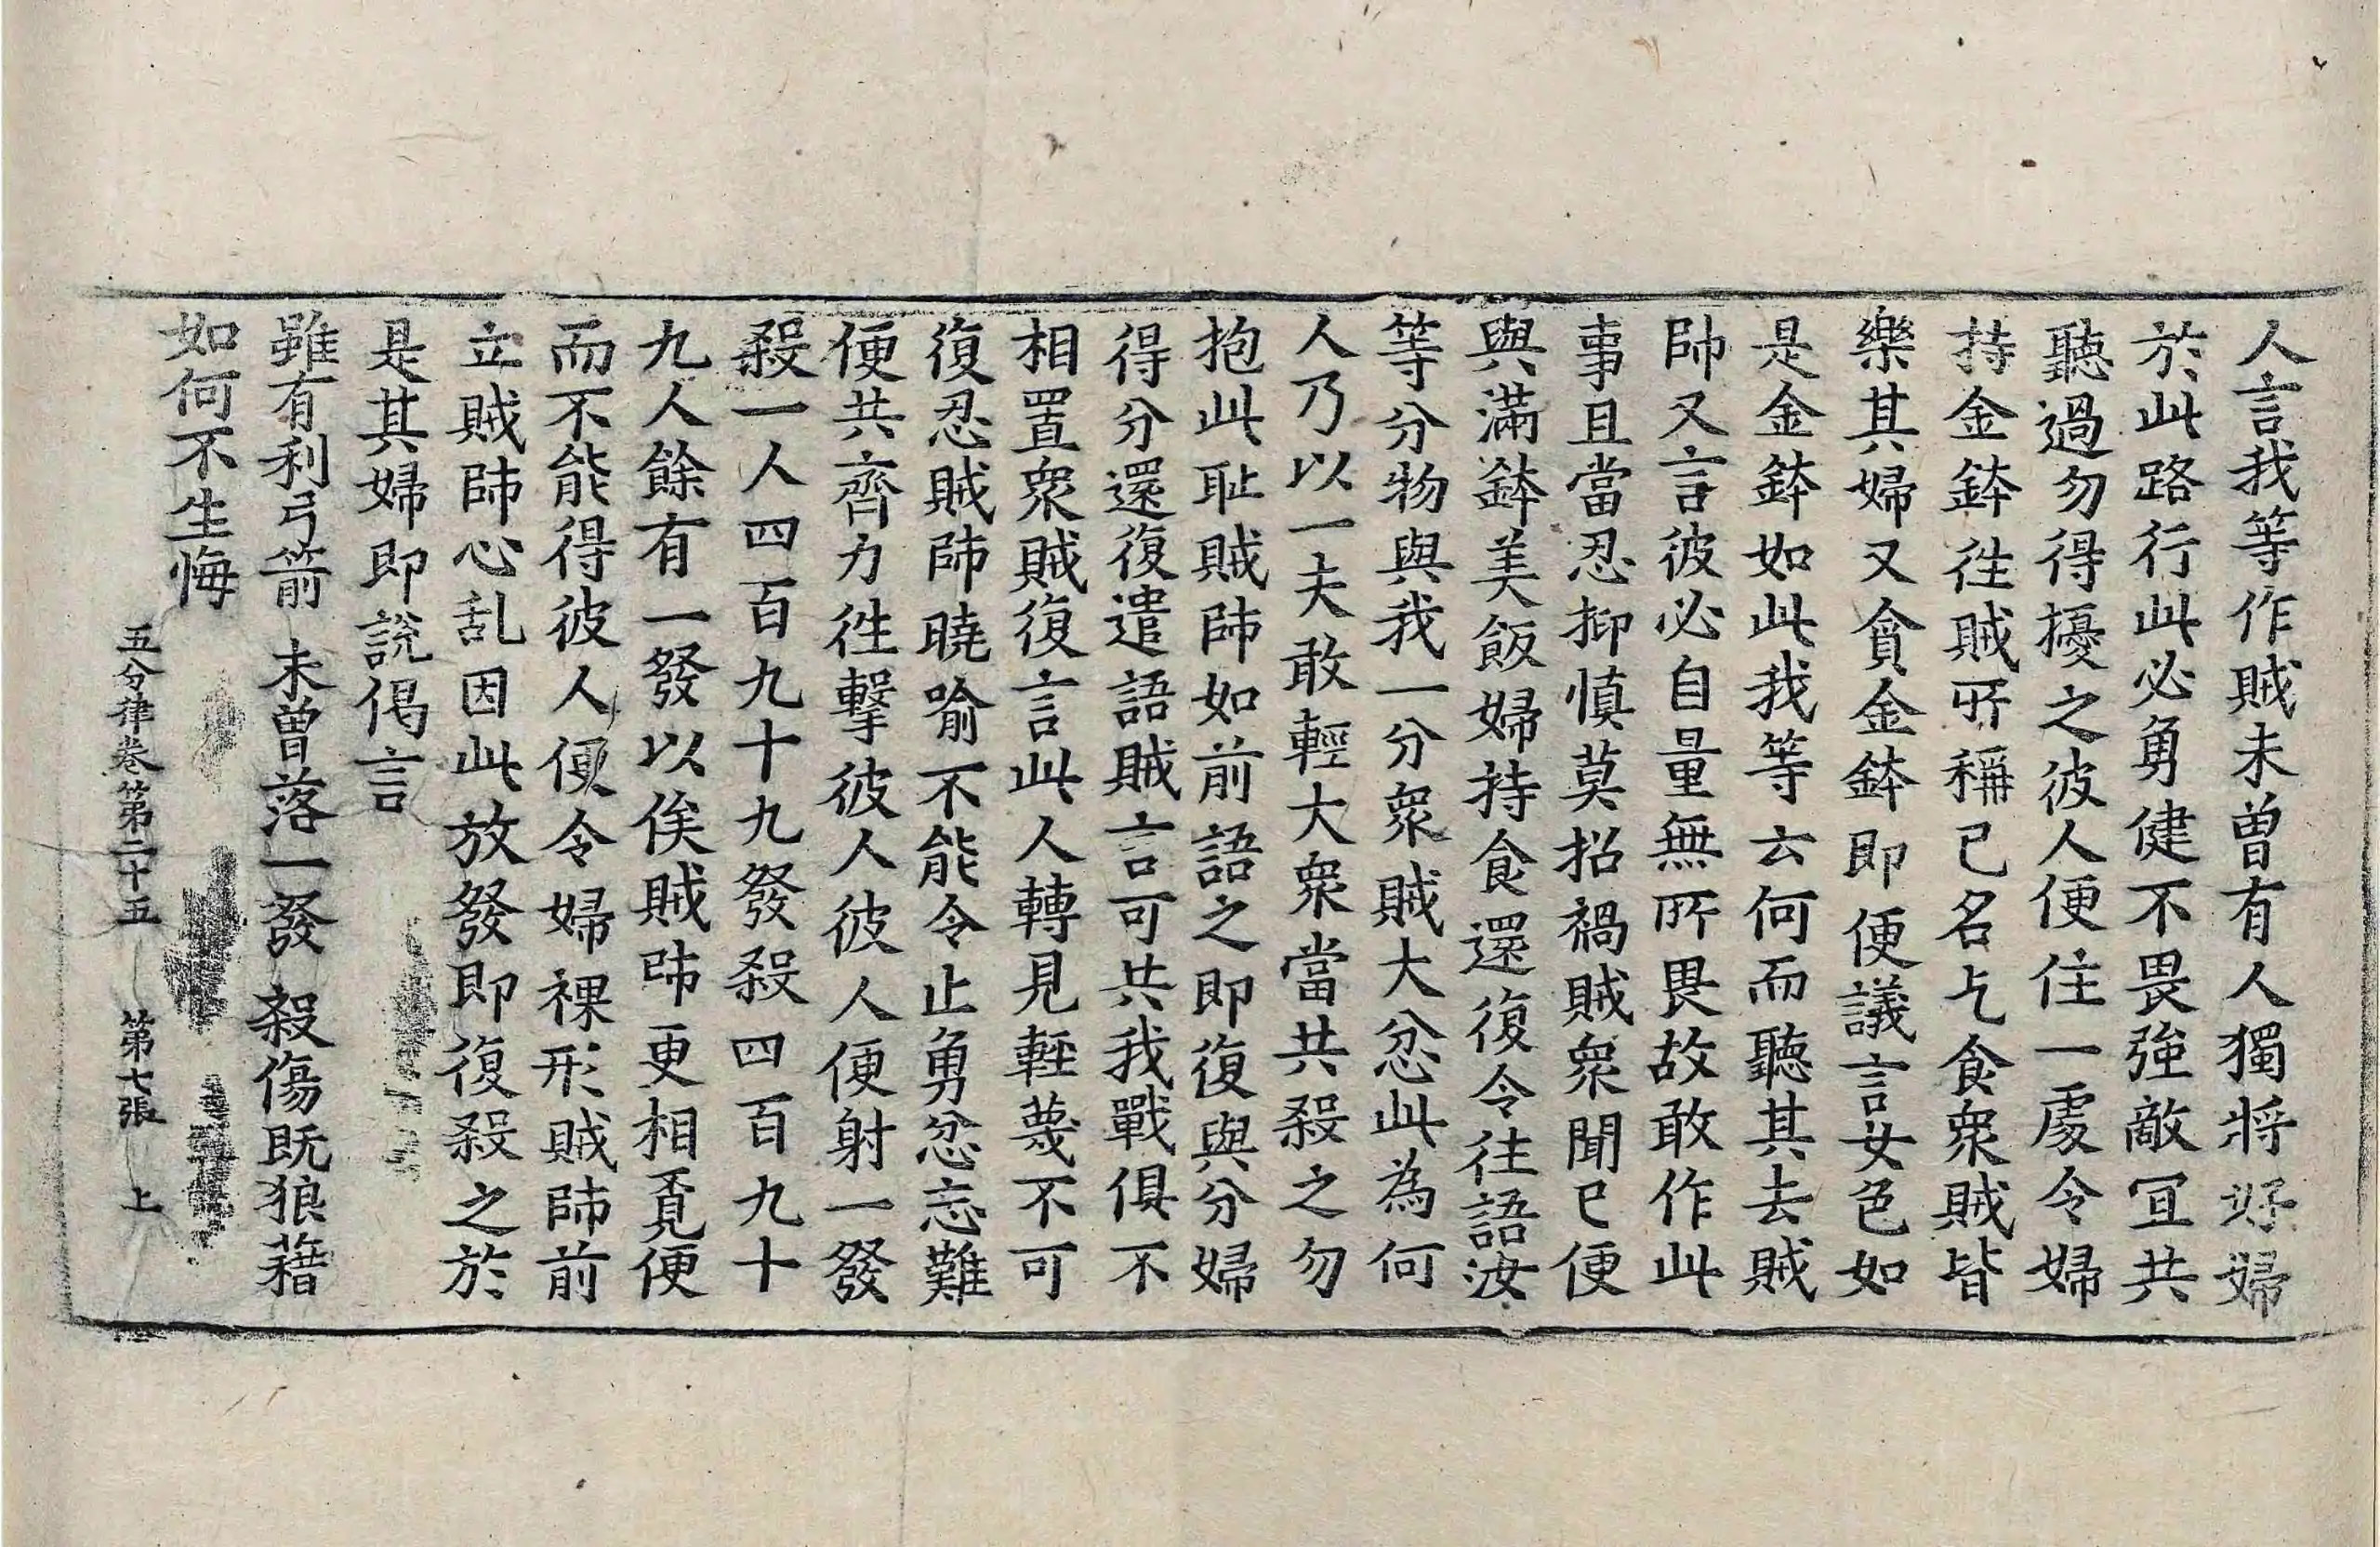 人言我等作賊未曾有人獨將好婦
於此路行此必勇健不畏強敵冝共
聽過勿得擾之彼人便住一處令婦
持金鉢徃賊所稱已名乞食衆賊皆
樂其婦又貪金鉢即便議言女色如
是金鉢如此我等云何而聽其去賊
帥又言彼必自量無所畏故敢作此
事且當忍抑慎莫招禍賊衆聞已便
與滿鉢美飯婦持食還復令往語汝
等分物與我一分衆賊大忿此為何
人乃以一夫敢輕大衆當共殺之勿
抱此耻賊帥如前語之即復與分婦
得分還復遣語賊言可共我戰俱不
相置衆賊復言此人轉見輕蔑不可
復忍賊帥曉喻不能令止勇忿忘難
便共齊力徃擊彼人彼人便射一發
殺一人四百九十九發殺四百九十
九人餘有一發以俟賊帥更相覔便
而不能得彼人便令婦裸形賊帥前
立賊帥心乱因此放發即復殺之於
是其婦即說偈言
雖有利弓箭 未曾落一發 殺傷既狼藉
如何不生悔
五分律卷第二十五 第七張 上